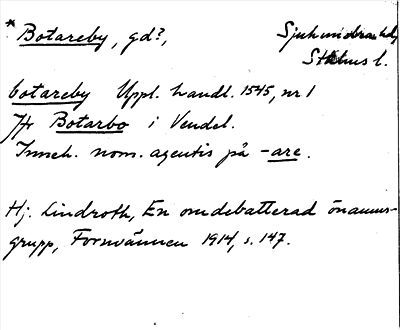 * Botareby, gd?,
Sjuhundra hd,
Sthlms l.
botareby Uppl. handl. 1545, nr 1
Jfr Botarbo i Vendel.
Inneh. nom. agentis på -are.
Hj. Lindroth, En omdebatterad önamns-
grupp, Fornvännen 1914, s. 147.